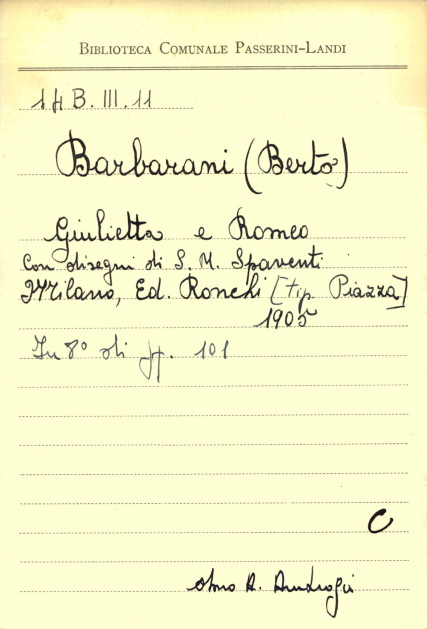 BIBLIOTECA COMUNALE PASSERINI-LANDI
14 B. III. 11
Barbarani (Berto)
Giulietta e Romeo
Con disegni di S. M. Spaventi
Milano, Ed. Ronchi [tip. Piazza]
1905
In 8° di pp. 101
C
dono A.